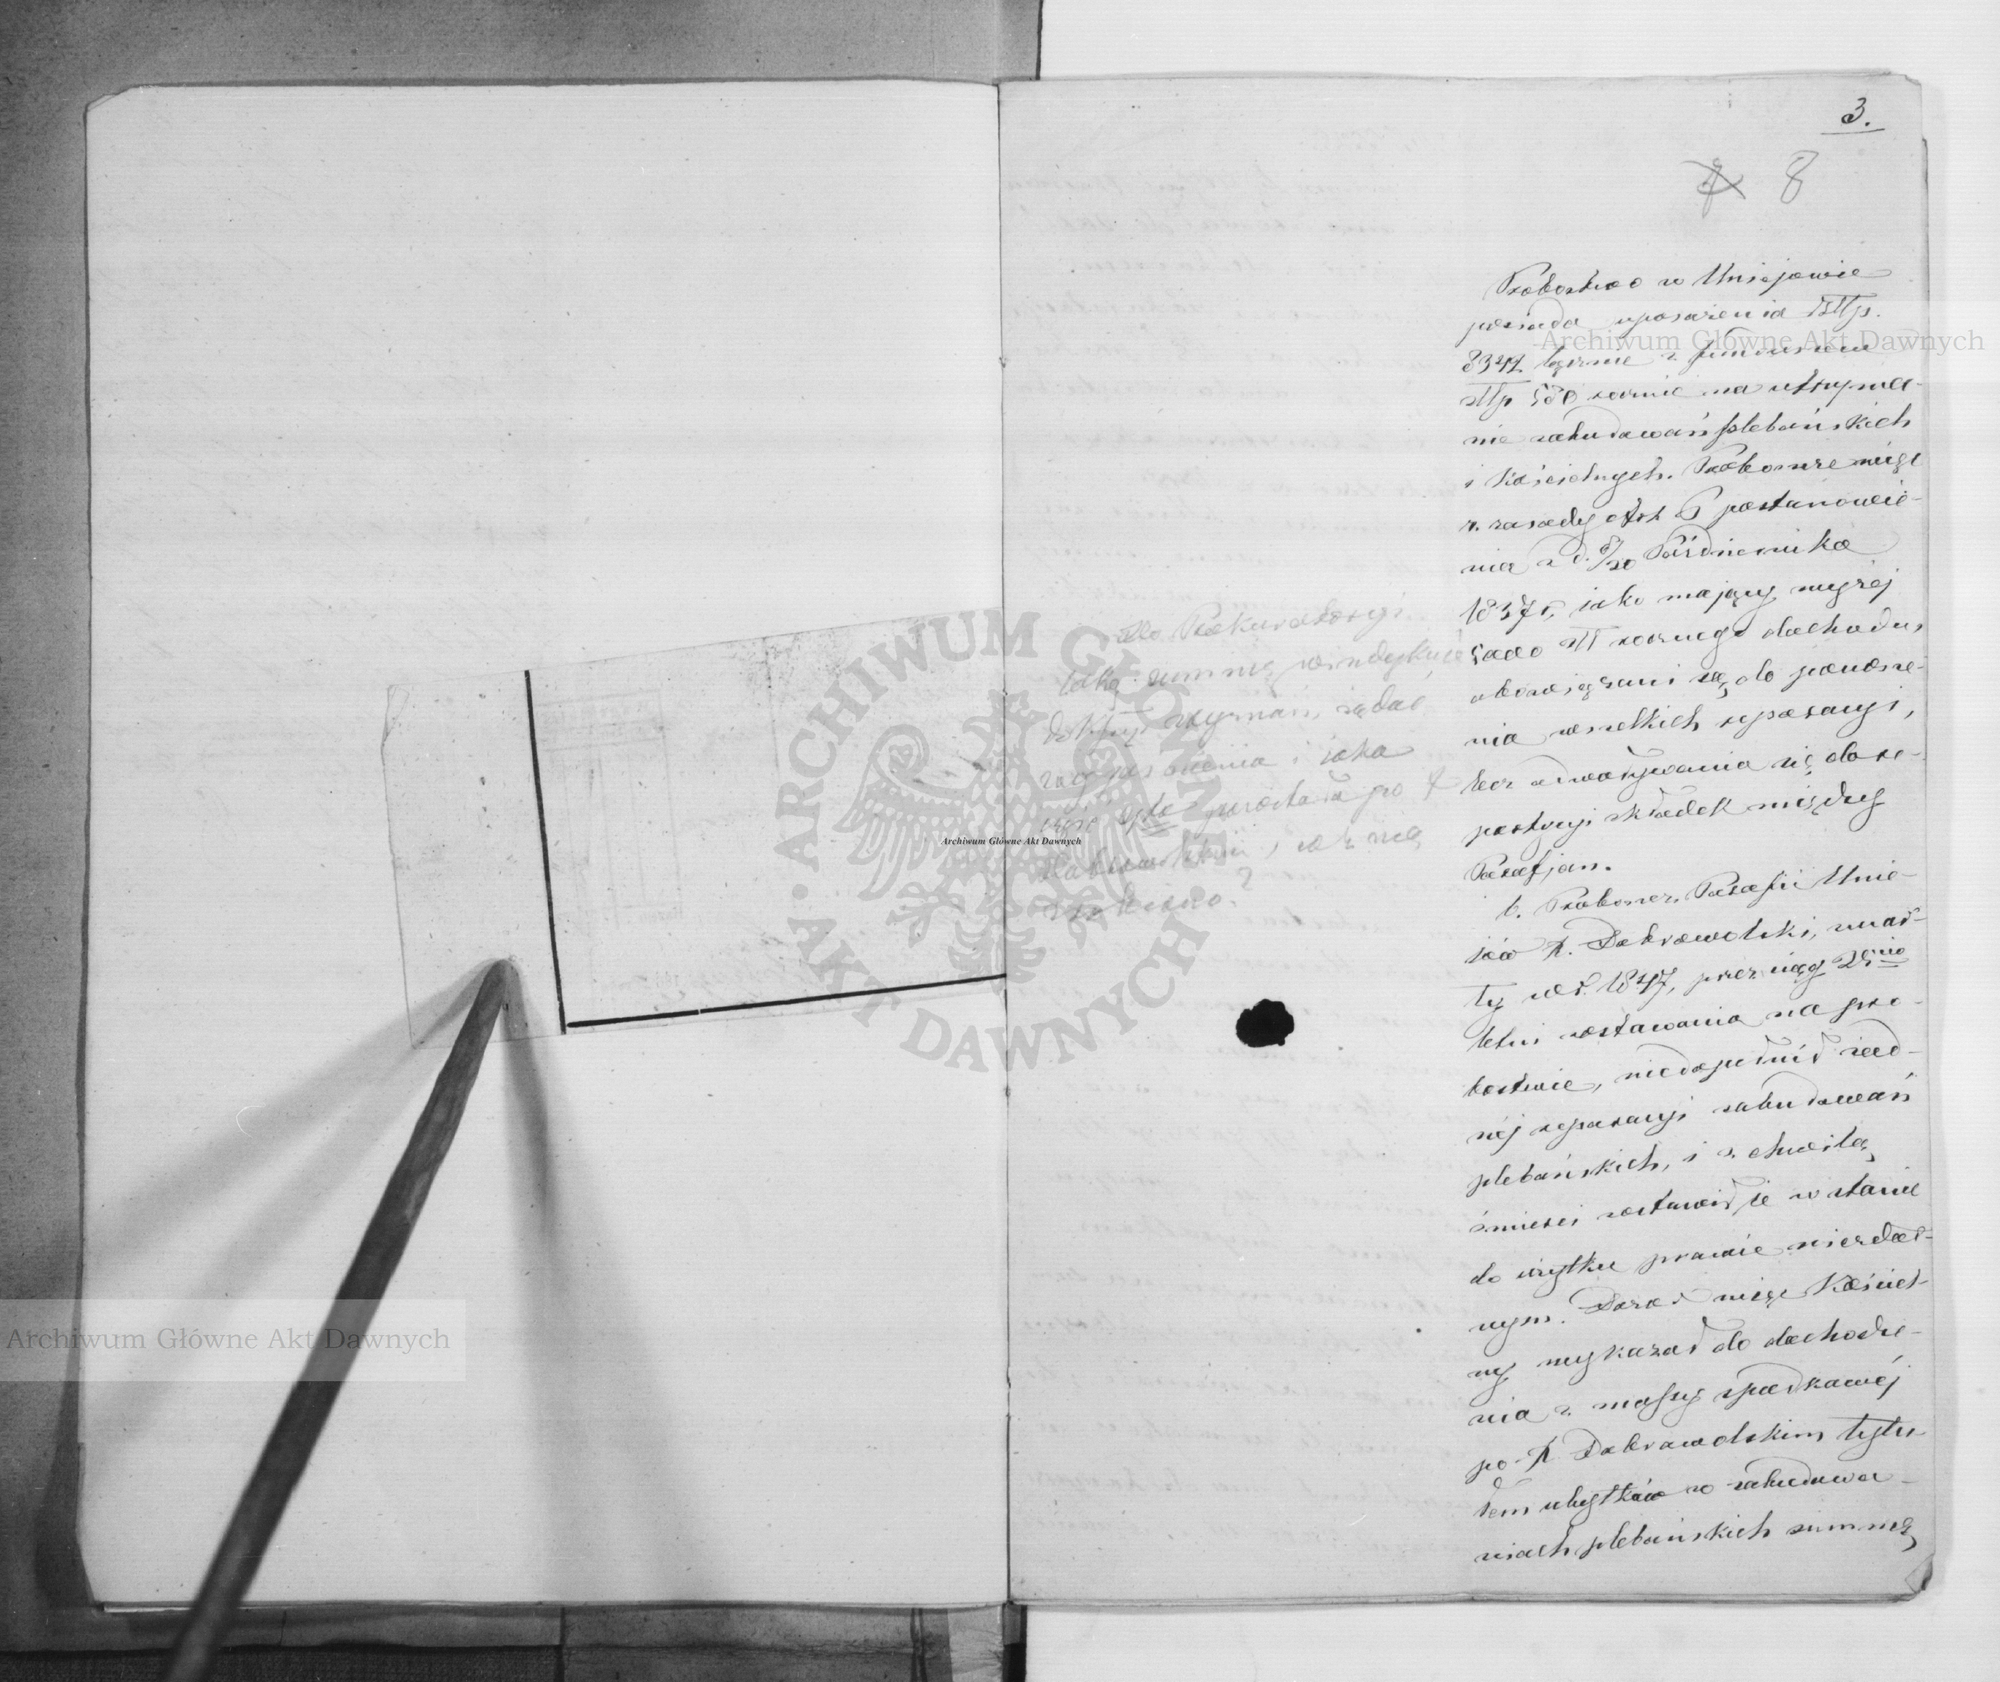 3.
8
Probostwo w Uniejowie
posiada uposażenia Złłp.
8347 łącznie z funduszem
złłp 580 rocznie na utrzyma-
nie zabudowań plebańskich
i Kościelnych. Proboszcz więc
z zasady Art 5 postanowie-
nia z d. 8/20 Październik
1837 r. jako mający wyżej
5000 złł rocznego dochodu,
obowiązani są do ponosze-
nia wszelkich reparacyi,
bez odwoływania się do re-
partycyi składek między
Parafjan.
b. Proboszcz Parafii Unie-
jów X. Dobrowolski, zmar-
ły w r. 1847, przez ciąg 25cio
letni zostawania na pro-
bostwie, niedopełnił żad-
néj reparacyi zabudowań
plebańskich, i z chwilą
śmierci zostawił je w stanie
do użytku prawie niezdat-
nym. Dozór więc Kościel-
ny wykazał do dochodze-
nia z massy spadkowéj
po X Dobrowolskim tytu-
łem ubytków w zabudowa-
niach plebańskich summę
Do Prokuratoryi
taką summę windykuje
doktny wyznań, żądać
wyjaśnienia i jaka
po X
Dobrowolskim, i co z nią
zrobiono?
ARCHIWUM GŁÓWNE AKT DAWNYCH
Archiwum Główne Akt Dawnych
Archiwum Główne Akt Dawnych
Archiwum Główne Akt Dawnych